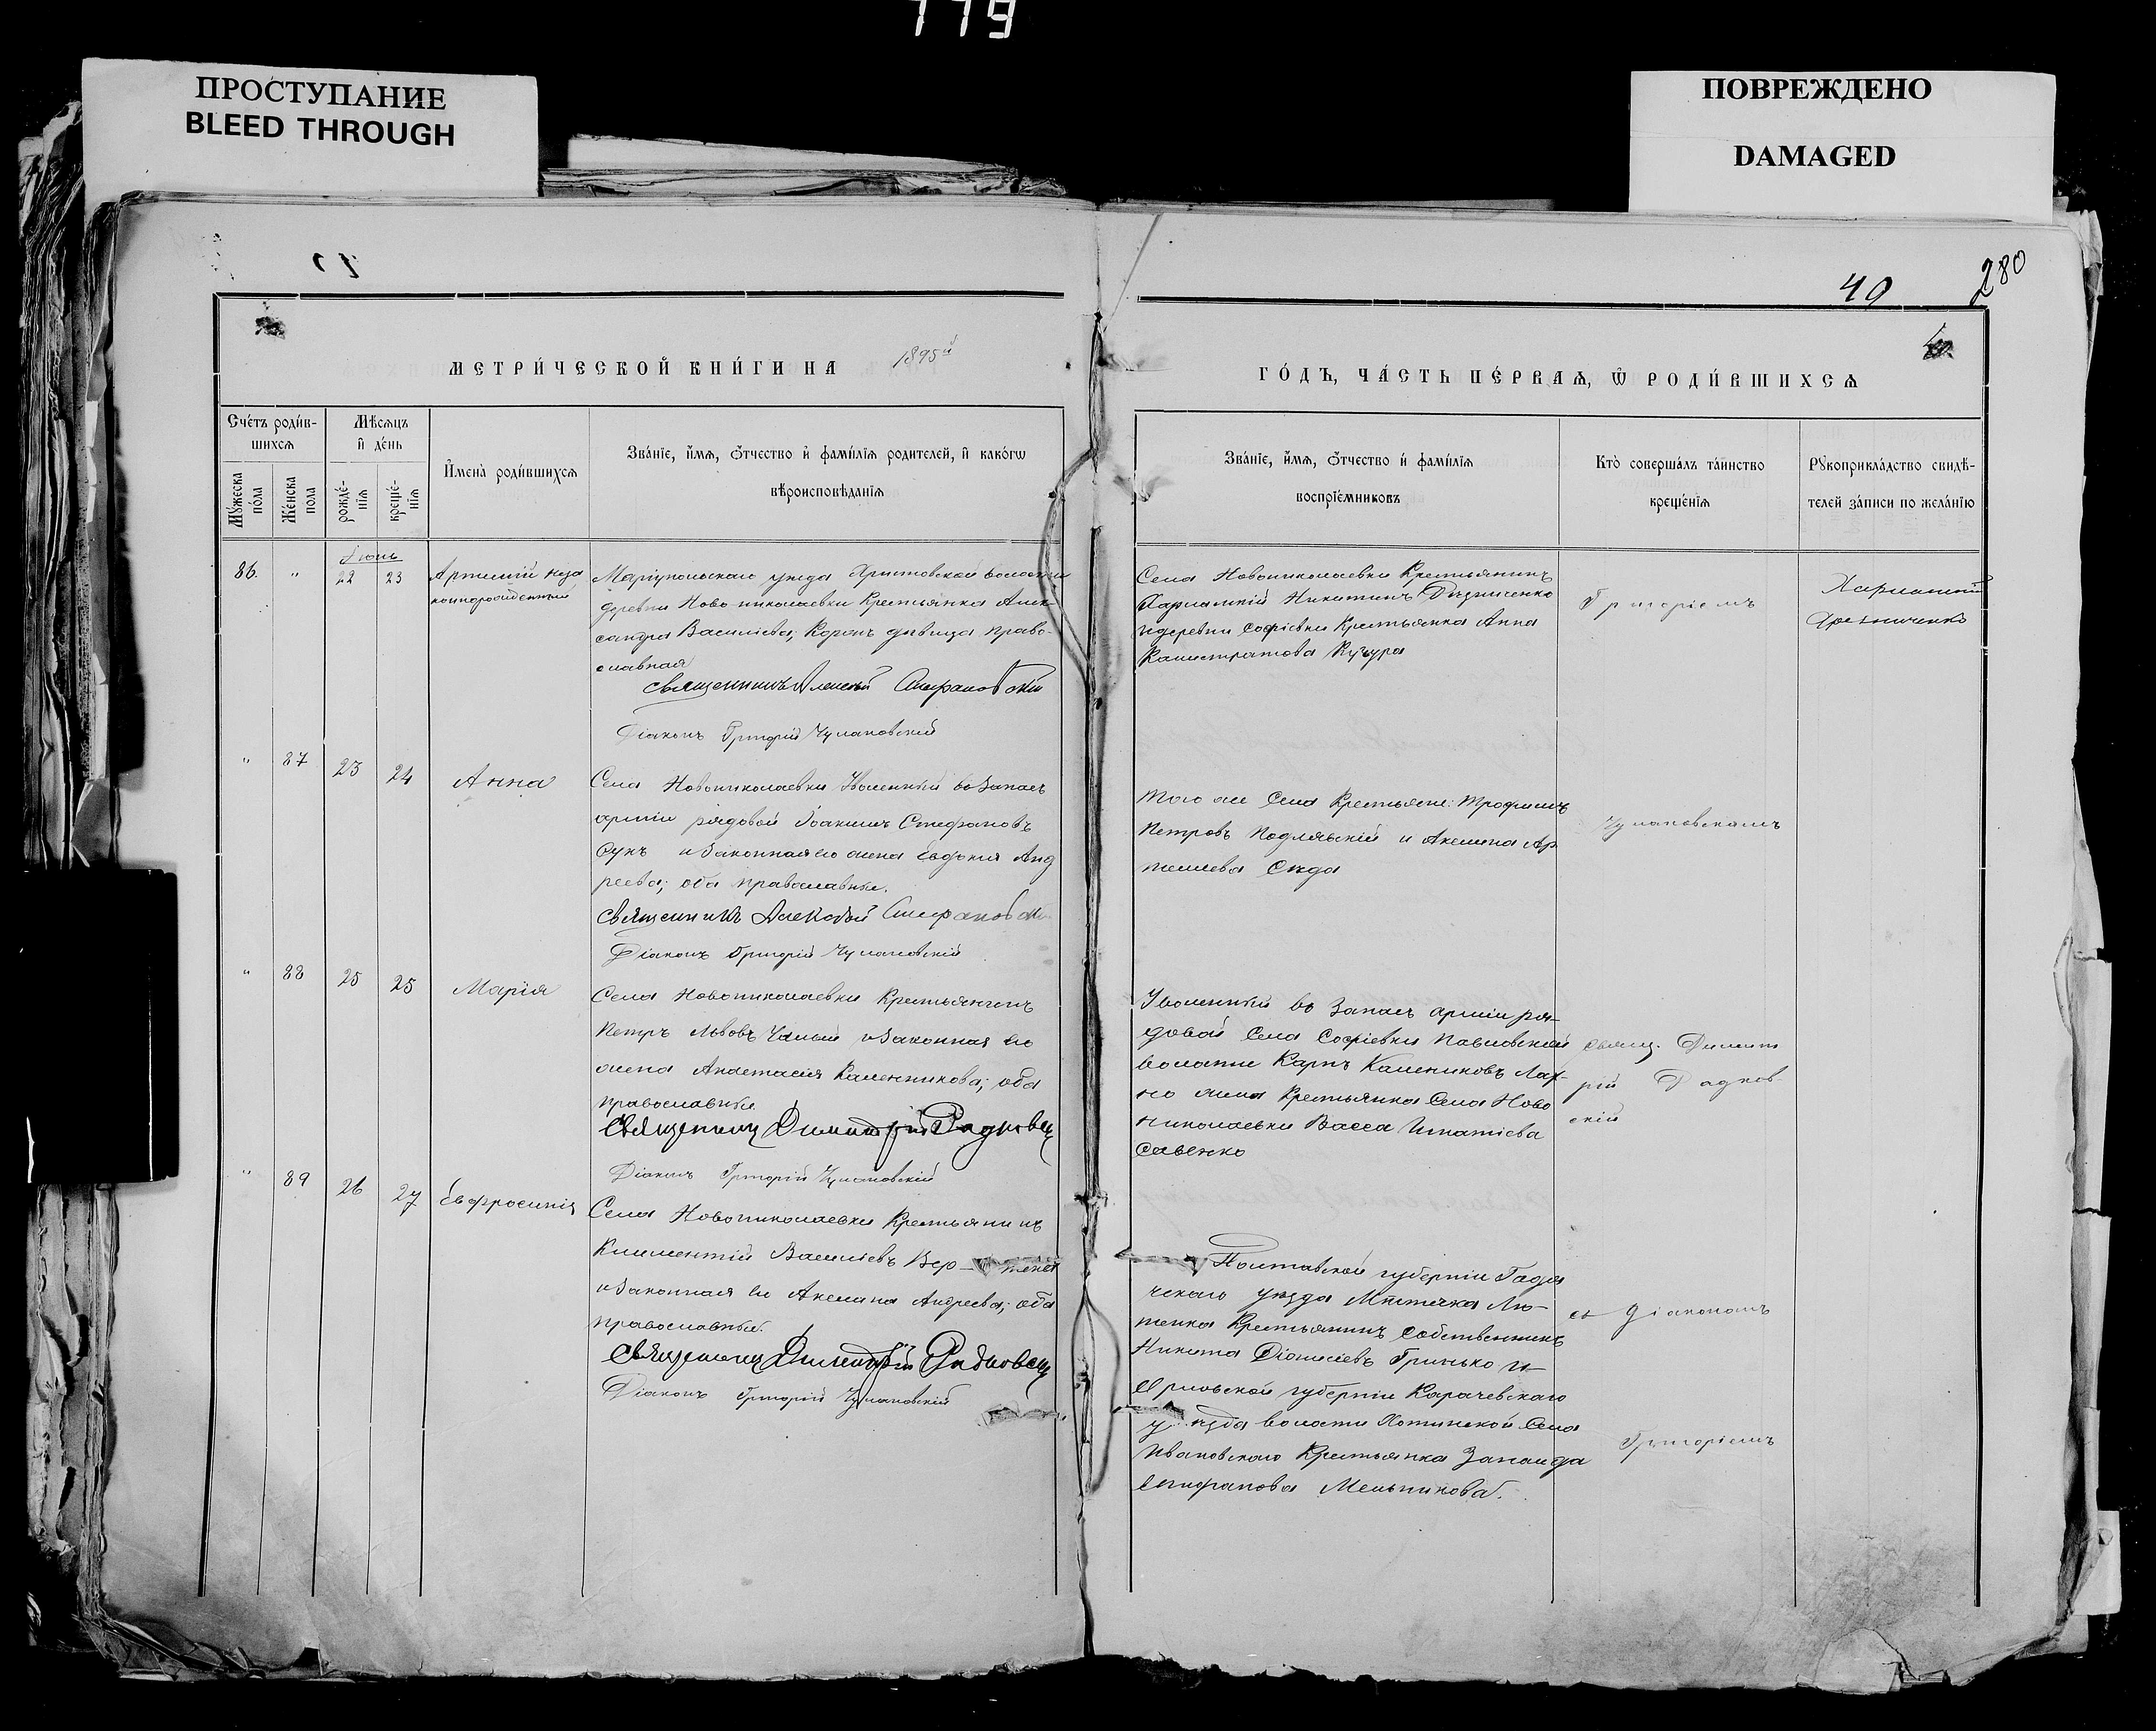 779
ПРОСТУПАНИЕ
BLEED THROUGH
ПОВРЕЖДЕНО
DAMAGED
280
40
МЕТРИ́ЧЕСКОЙ КНИ́ГИ НА 1895й
ГО́ДЪ, ЧА́СТЬ ПЕ́РВАѦ, Ѡ҆ РОДИ́ВШИХСѦ
Сче́тъ роди́в-
шихсѧ
Мꙋ́жеска
по́ла
Же́нска
пола
Мѣсѧцъ
и҆ де́нь
рожде́-
нїѧ
креще́-
нїѧ
И҆мена̀ роди́вшихсѧ
Зва́нїе, и҆́мѧ, ѻ҆́тчество и҆ фами́лїѧ родителей, и҆ како́гѡ
вѣроисповѣ́данїѧ
Зва́нїе, и҆́мѧ, ѻ҆́тчество и҆ фами́лїѧ
воспрїе́мниковъ
Кто̀ соверша́лъ та́инство
креще́нїѧ
Рꙋкоприкла́дство свидѣ́-
телей за́писи по жела́нїю
Іюнь
86. " 22 23 Артемій неза
коннорожденный
Маріупольскаго уѣзда Христовской волости
деревни Новониколаевки Крестьянка Алек-
сандра Василіева, дѣвица право-
славная
Священникъ Алексѣй
Діаконъ Григорій Чулановскій
Села Новониколаевки Крестьянинъ
Харлампій Никитинъ
и деревни Софіевки Крестьянка Анна
Калистратова Кучура
Григоріемъ
Харлампий
" 87 23 24 Анна
Села Новониколаевки Уволенный въ запасъ
арміи рядовой Іоакимъ Стефановъ
и Законная его жена Евдокія Анд
реева; оба православные.
Священникъ Алексѣй
Діаконъ Григорій Чулановскій
Того же Села Крестьяне: Трофимъ
Петровъ Подляскій и Акилина Ар
темиева
Чулановскимъ
" 88 25 25 Марія
Села Новониколаевки Крестьянинъ
Петръ Львовъ Чалый и Законная его
жена Анастасія Каленникова; оба
православные.
Священникъ Димитрій
Діаконъ Григорій Чулановскій
Уволенный въ запасъ арміи ря-
довой Села Софіевки Павловской
волости Карпъ Калениковъ Лах-
но жена Крестьянка Села Ново
николаевки Васса Игнатіева
Савенко
Свящ. Димит
рій Радков-
скій
" 89 26 27 Евфросинія
Села Новониколаевки Крестьянинъ
Климентій Василіевъ
и Законная его Акилина Андреева; оба
православные.
Священникъ Димитрій
Діаконъ Григорій Чулановскій
Полтавской губерніи Гадя
чскаго уѣзда Мѣстечка Лю-
тенка Крестьянинъ собственникъ
Никита Діонисіевъ Гринько и
Орловской губерніи Карачевскаго
уѣзда волости Хотинской Села
Ивановскаго Крестьянка Зинаида
Епифанова Мельникова.
съ діакономъ
Григоріемъ